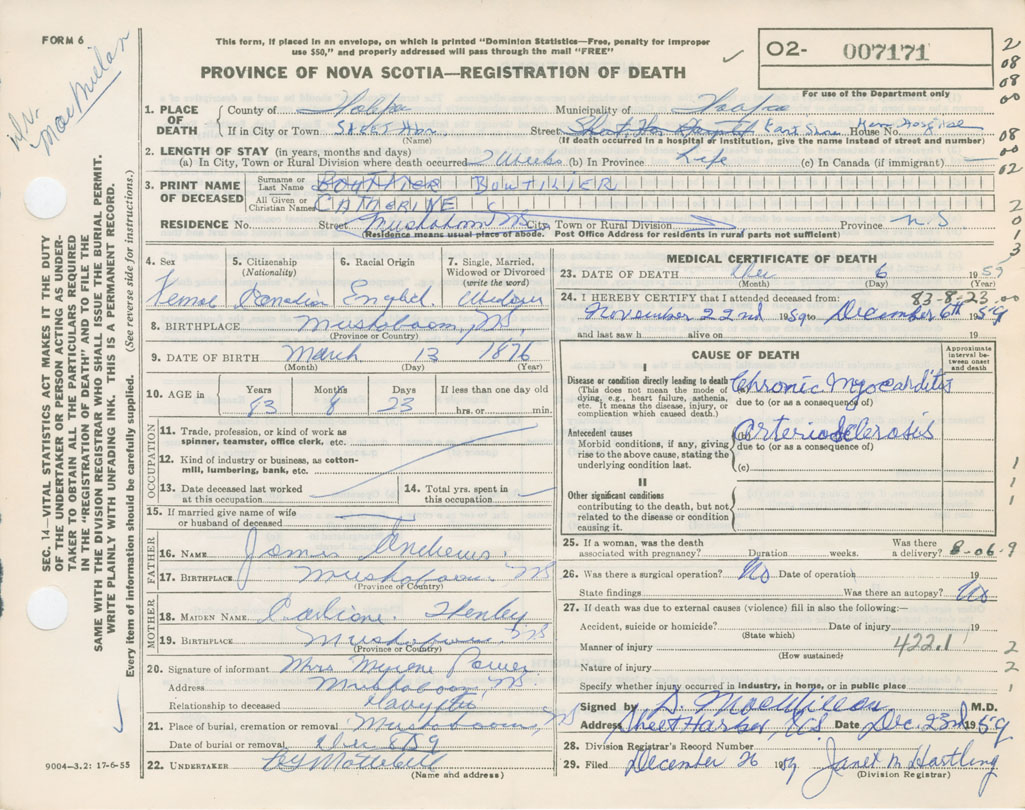 FORM 6
This form, if placed in an envelope, on which is printed "Dominion Statistics—Free, penalty for improper
use $50," and properly addressed will pass through the mail "FREE"
PROVINCE OF NOVA SCOTIA—REGISTRATION OF DEATH
O2- 007171
For use of the Department only
Dr. MacMillan
SEC. 14—VITAL STATISTICS ACT MAKES IT THE DUTY
OF THE UNDERTAKER OR PERSON ACTING AS UNDER-
TAKER TO OBTAIN ALL THE PARTICULARS REQUIRED
IN THE "REGISTRATION OF DEATH" AND TO FILE THE
SAME WITH THE DIVISION REGISTRAR WHO SHALL ISSUE THE BURIAL PERMIT.
WRITE PLAINLY WITH UNFADING INK. THIS IS A PERMANENT RECORD.
Every item of information should be carefully supplied. (See reverse side for instructions.)
1. PLACE OF DEATH County of Halifax Municipality of Halifax
If in City or Town Sheet Har. Street East Shore Mem Hospital House No.
(Name) (If death occurred in a hospital or institution, give the name instead of street and number)
2. LENGTH OF STAY (in years, months and days)
(a) In City, Town or Rural Division where death occurred 2 Weeks (b) In Province Life (c) In Canada (if immigrant) —
3. PRINT NAME OF DECEASED Surname or Last Name BOUTILIER
All Given or Christian Names CATHERINE
RESIDENCE No. Street Mushaboom NS City, Town or Rural Division Province N.S
(Residence means usual place of abode. Post Office Address for residents in rural parts not sufficient)
4. Sex 5. Citizenship (Nationality) 6. Racial Origin 7. Single, Married, Widowed or Divorced (write the word)
Female Canadian English Widow
8. BIRTHPLACE Mushaboom, NS
(Province or Country)
9. DATE OF BIRTH March 13 1876
(Month) (Day) (Year)
10. AGE in Years Months Days If less than one day old
83 8 23 hrs. or min.
OCCUPATION
11. Trade, profession, or kind of work as
spinner, teamster, office clerk, etc.
12. Kind of industry or business, as cotton-
mill, lumbering, bank, etc.
13. Date deceased last worked
at this occupation
14. Total yrs. spent in
this occupation
15. If married give name of wife
or husband of deceased
FATHER
16. NAME James Andrews
17. BIRTHPLACE Mushaboom NS
(Province or Country)
MOTHER
18. MAIDEN NAME Henley
19. BIRTHPLACE Mushaboom NS
(Province or Country)
20. Signature of informant Mrs Power
Address Mushaboom, NS
Relationship to deceased
21. Place of burial, cremation or removal Mushaboom, NS
Date of burial or removal Dec 8 59
22. UNDERTAKER
(Name and address)
9004—3.2: 17-6-55
MEDICAL CERTIFICATE OF DEATH
23. DATE OF DEATH Dec 6 1959
(Month) (Day) (Year)
24. I HEREBY CERTIFY that I attended deceased from: 83-8-23.00
November 22nd 1959 to December 6th 1959
and last saw h alive on 19
CAUSE OF DEATH
Approximate interval between onset and death
I
Disease or condition directly leading to death
(This does not mean the mode of
dying, e.g., heart failure, asthenia,
etc. It means the disease, injury, or
complication which caused death.)
(a) Chronic Myocarditis
due to (or as a consequence of)
Antecedent causes
Morbid conditions, if any, giving
rise to the above cause, stating the
underlying condition last.
(b) Arteriosclerosis
due to (or as a consequence of)
(c)
II
Other significant conditions
contributing to the death, but not
related to the disease or condition
causing it.
25. If a woman, was the death
associated with pregnancy? Duration weeks. Was there
a delivery? 8-06-9
26. Was there a surgical operation? No Date of operation 19
State findings Was there an autopsy? No
27. If death was due to external causes (violence) fill in also the following:—
Accident, suicide or homicide? Date of injury 19
(State which)
Manner of injury 422.1
(How sustained)
Nature of injury
Specify whether injury occurred in industry, in home, or in public place
Signed by D. MacMillan M.D.
Address Sheet Harbor, N.S. Date Dec. 23rd 1959
28. Division Registrar's Record Number
29. Filed December 26 1959 Janet M Hartling
(Division Registrar)
2
08
08
00
08
00
02
2
0
1
3
1
1
1
2
2
1